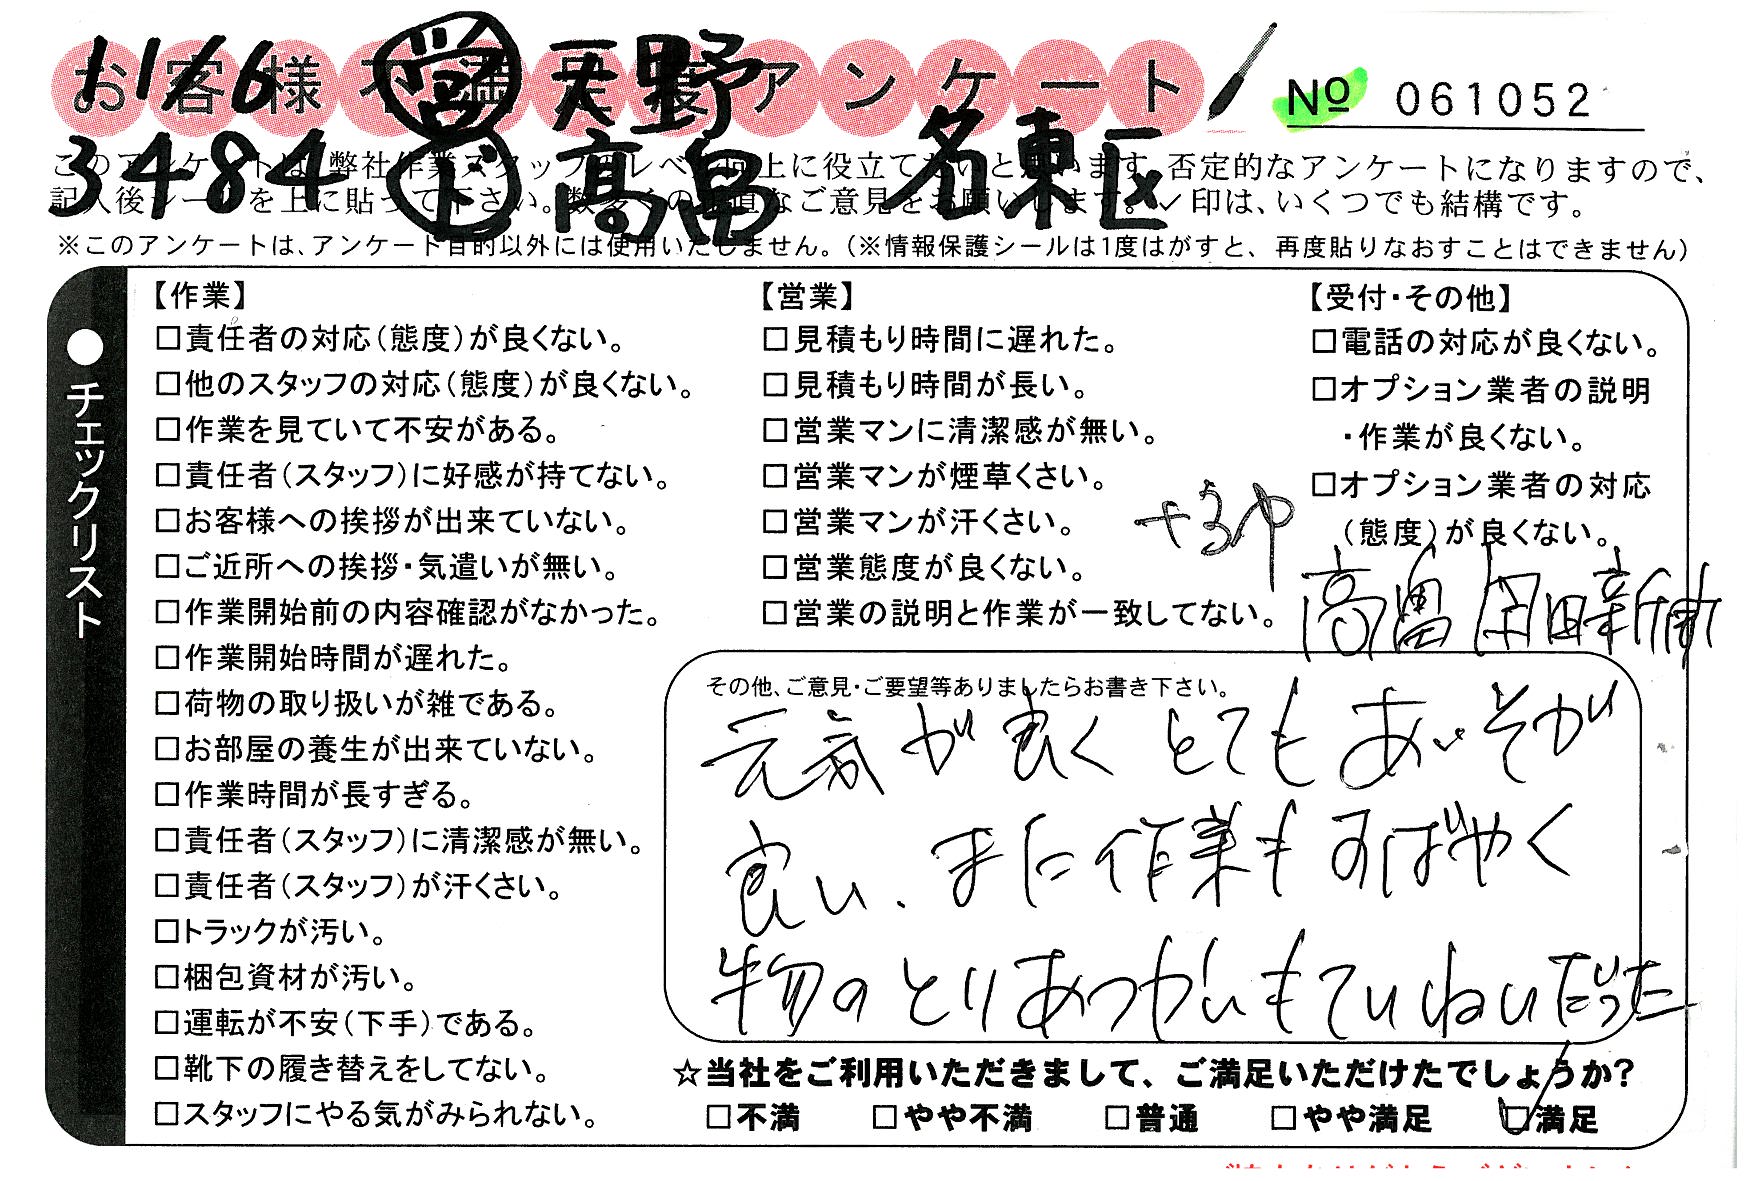 お客様不満足度アンケート
11/6 営 天野
No 061052
3484 下 高畠 名東区
このアンケートは、弊社作業スタッフのレベル向上に役立てたいと思います。否定的なアンケートになりますので、
記入後シールを上に貼って下さい。数多くの正直なご意見をお願いします。✓印は、いくつでも結構です。
※このアンケートは、アンケート目的以外には使用いたしません。（※情報保護シールは1度はがすと、再度貼りなおすことはできません）
●チェックリスト
【作業】
□責任者の対応（態度）が良くない。
□他のスタッフの対応（態度）が良くない。
□作業を見ていて不安がある。
□責任者（スタッフ）に好感が持てない。
□お客様への挨拶が出来ていない。
□ご近所への挨拶・気遣いが無い。
□作業開始前の内容確認がなかった。
□作業開始時間が遅れた。
□荷物の取り扱いが雑である。
□お部屋の養生が出来ていない。
□作業時間が長すぎる。
□責任者（スタッフ）に清潔感が無い。
□責任者（スタッフ）が汗くさい。
□トラックが汚い。
□梱包資材が汚い。
□運転が不安（下手）である。
□靴下の履き替えをしてない。
□スタッフにやる気がみられない。
【営業】
□見積もり時間に遅れた。
□見積もり時間が長い。
□営業マンに清潔感が無い。
□営業マンが煙草くさい。
□営業マンが汗くさい。
□営業態度が良くない。
□営業の説明と作業が一致してない。
【受付・その他】
□電話の対応が良くない。
□オプション業者の説明
・作業が良くない。
□オプション業者の対応
（態度）が良くない。
高畠
その他、ご意見・ご要望等ありましたらお書き下さい。
元気が良くとてもあいそが
良い、また作業もすばやく
物のとりあつかいもていねいだった
☆当社をご利用いただきまして、ご満足いただけたでしょうか？
□不満 □やや不満 □普通 □やや満足 ☑満足